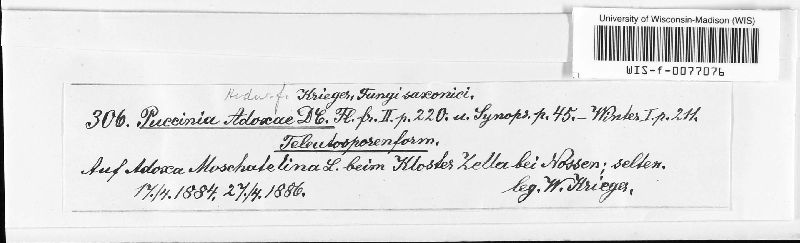 University of Wisconsin-Madison (WIS)
WIS-f-0077076
Hedw. f. Krieger, Fungi saxonici.
306. Puccinia Adoxae DC. Fl. fr. II. p. 220. u. Synops. p. 45. – Winter I. p. 211.
Teleutosporenform.
Auf Adoxa Moschatelina L. beim Kloster Zella bei Nossen; selten.
17./4. 1884, 27./4. 1886. leg. W. Krieger.